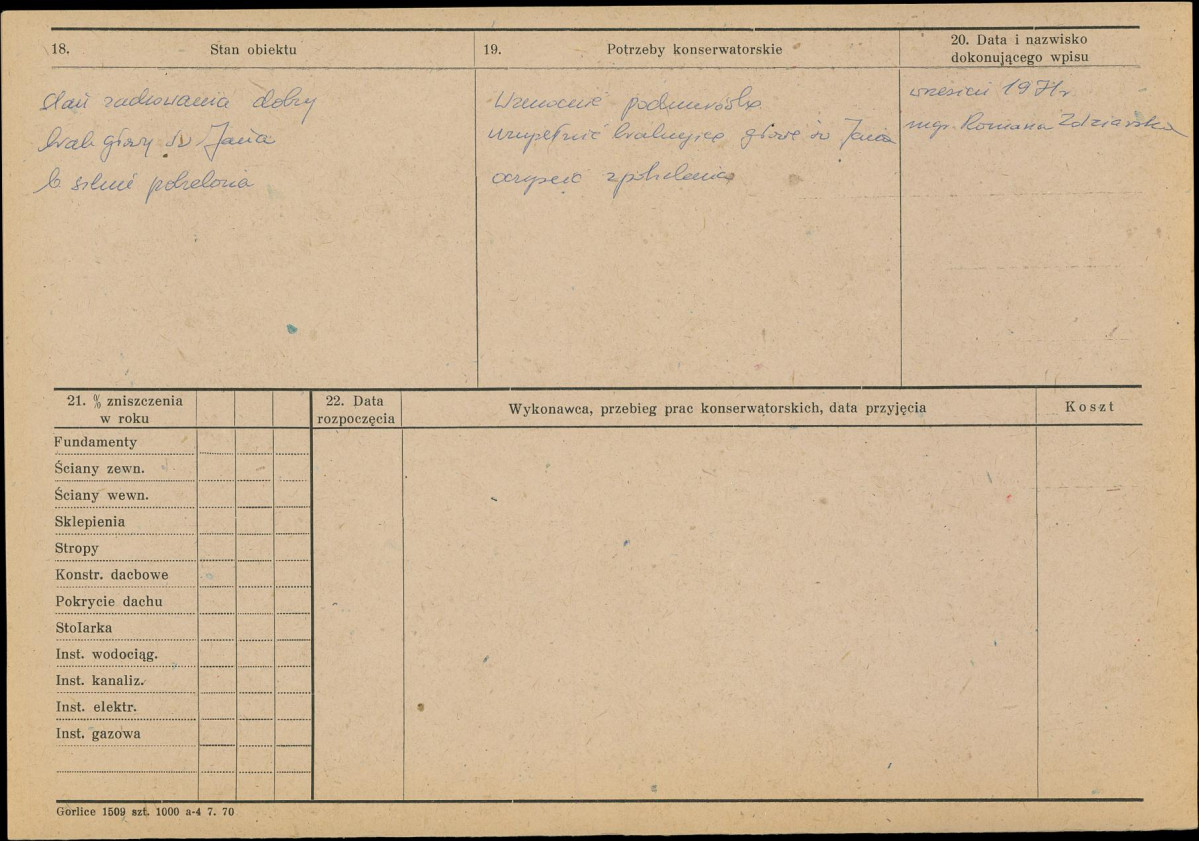 18. Stan obiektu
stan zachowania dobry
brak głowy św Jana
b. silnie pobielona
19. Potrzeby konserwatorskie
Wzmocnić podmurówkę
uzupełnić brakującą głowę św Jana
oczyścić z pobielenia
20. Data i nazwisko
dokonującego wpisu
wrzesień 1971 r.
mgr. Romana Zdziarska
21. % zniszczenia
w roku
Fundamenty
Ściany zewn.
Ściany wewn.
Sklepienia
Stropy
Konstr. dachowe
Pokrycie dachu
Stolarka
Inst. wodociąg.
Inst. kanaliz.
Inst. elektr.
Inst. gazowa
22. Data
rozpoczęcia
Wykonawca, przebieg prac konserwatorskich, data przyjęcia
Koszt
Gorlice 1509 szt. 1000 a-4 7. 70